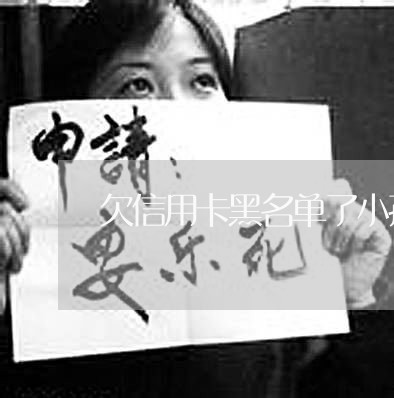 申請：
欠信用卡黑名单了小
要乐死